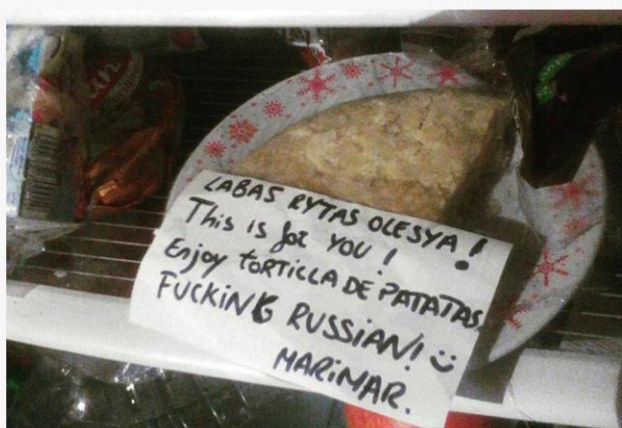 LABAS RYTAS OLESYA!
This is foR YOU!
Enjoy toRTILLA DE PATATAS,
FUCKING RUSSIAN! :)
MARIMAR.